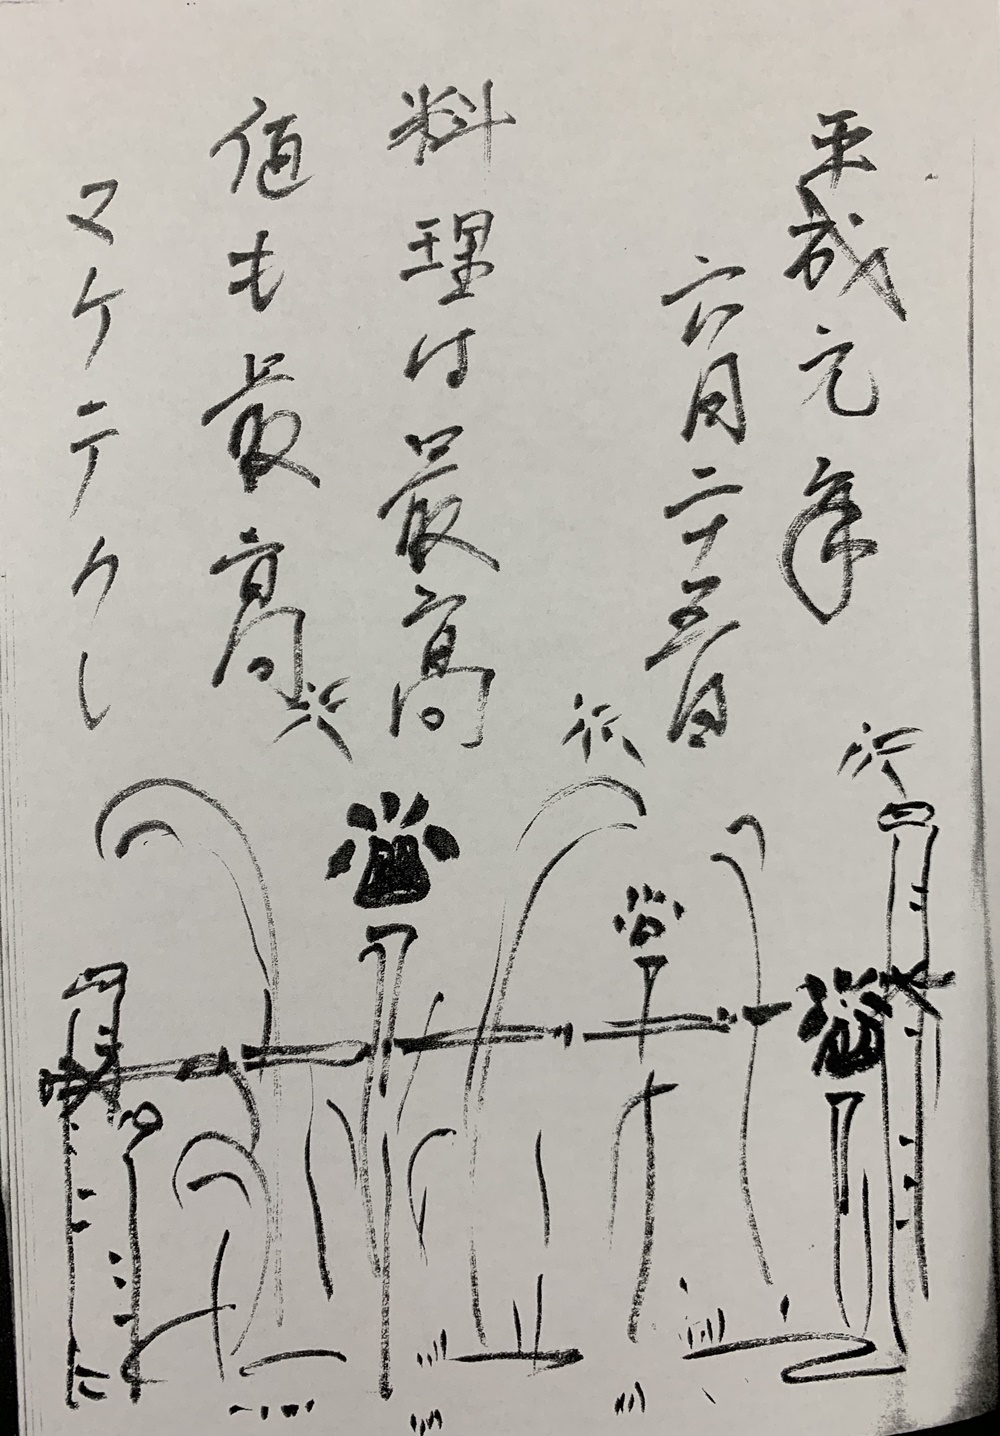 平成元年
六月二十五日
料理は最高
値も最高
マケテクレ